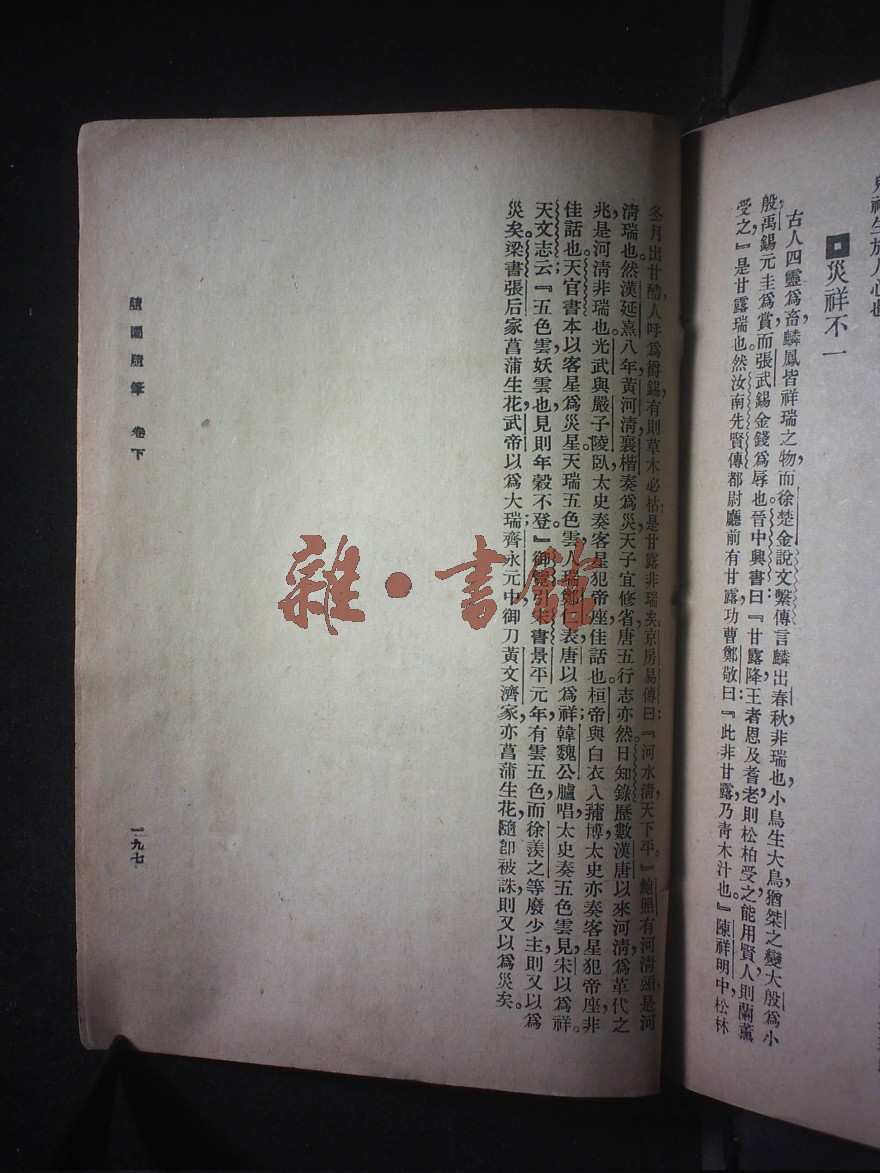 鬼神生於人心也
災祥不一
古人四靈爲畜,麟鳳皆祥瑞之物,而徐楚金說文繫傳言麟出春秋,非瑞也,小鳥生大鳥,猶桀之變大殷爲小
殷,禹錫元圭爲賞,而張武錫金錢爲辱也。晉中興書曰:『甘露降,王者恩及耆老,則松柏受之,能用賢人,則蘭薰
受之。』是甘露瑞也。然汝南先賢傳:都尉廳前有甘露,功曹鄭敬曰:『此非甘露,乃青木汁也。』陳祥明中松林
冬月出甘醴,人呼爲爵錫,有則草木必枯;是甘露非瑞矣。京房易傳曰:『河水清,天下平。』鮑照有河清頭,是河
清瑞也。然漢延熹八年,黃河清,襄楷奏爲災,天子宜修省,唐五行志亦然。日知錄歷數漢唐以來,河清爲革代之
兆,是河清非瑞也。光武與嚴子陵臥,太史奏客星犯帝座,佳話也。桓帝與白衣人蒱博,太史亦奏客星犯帝座,非
佳話也。天官書本以客星爲災星。天瑞五色雲,人瑞鄭仁表,唐以爲祥;韓魏公臚唱,太史奏五色雲見,宋以爲祥。
天文志云:『五色雲,妖雲也,見則年穀不登。』御覽引宋書景平元年,有雲五色,而徐羨之等廢少主,則又以爲
災矣。梁書張后家菖蒲生花,武帝以爲大瑞;齊永元中,御刀黃文濟家,亦菖蒲生花,隨卽被誅,則又以爲災矣。
隨園隨筆 卷下
一九七
雜·書館